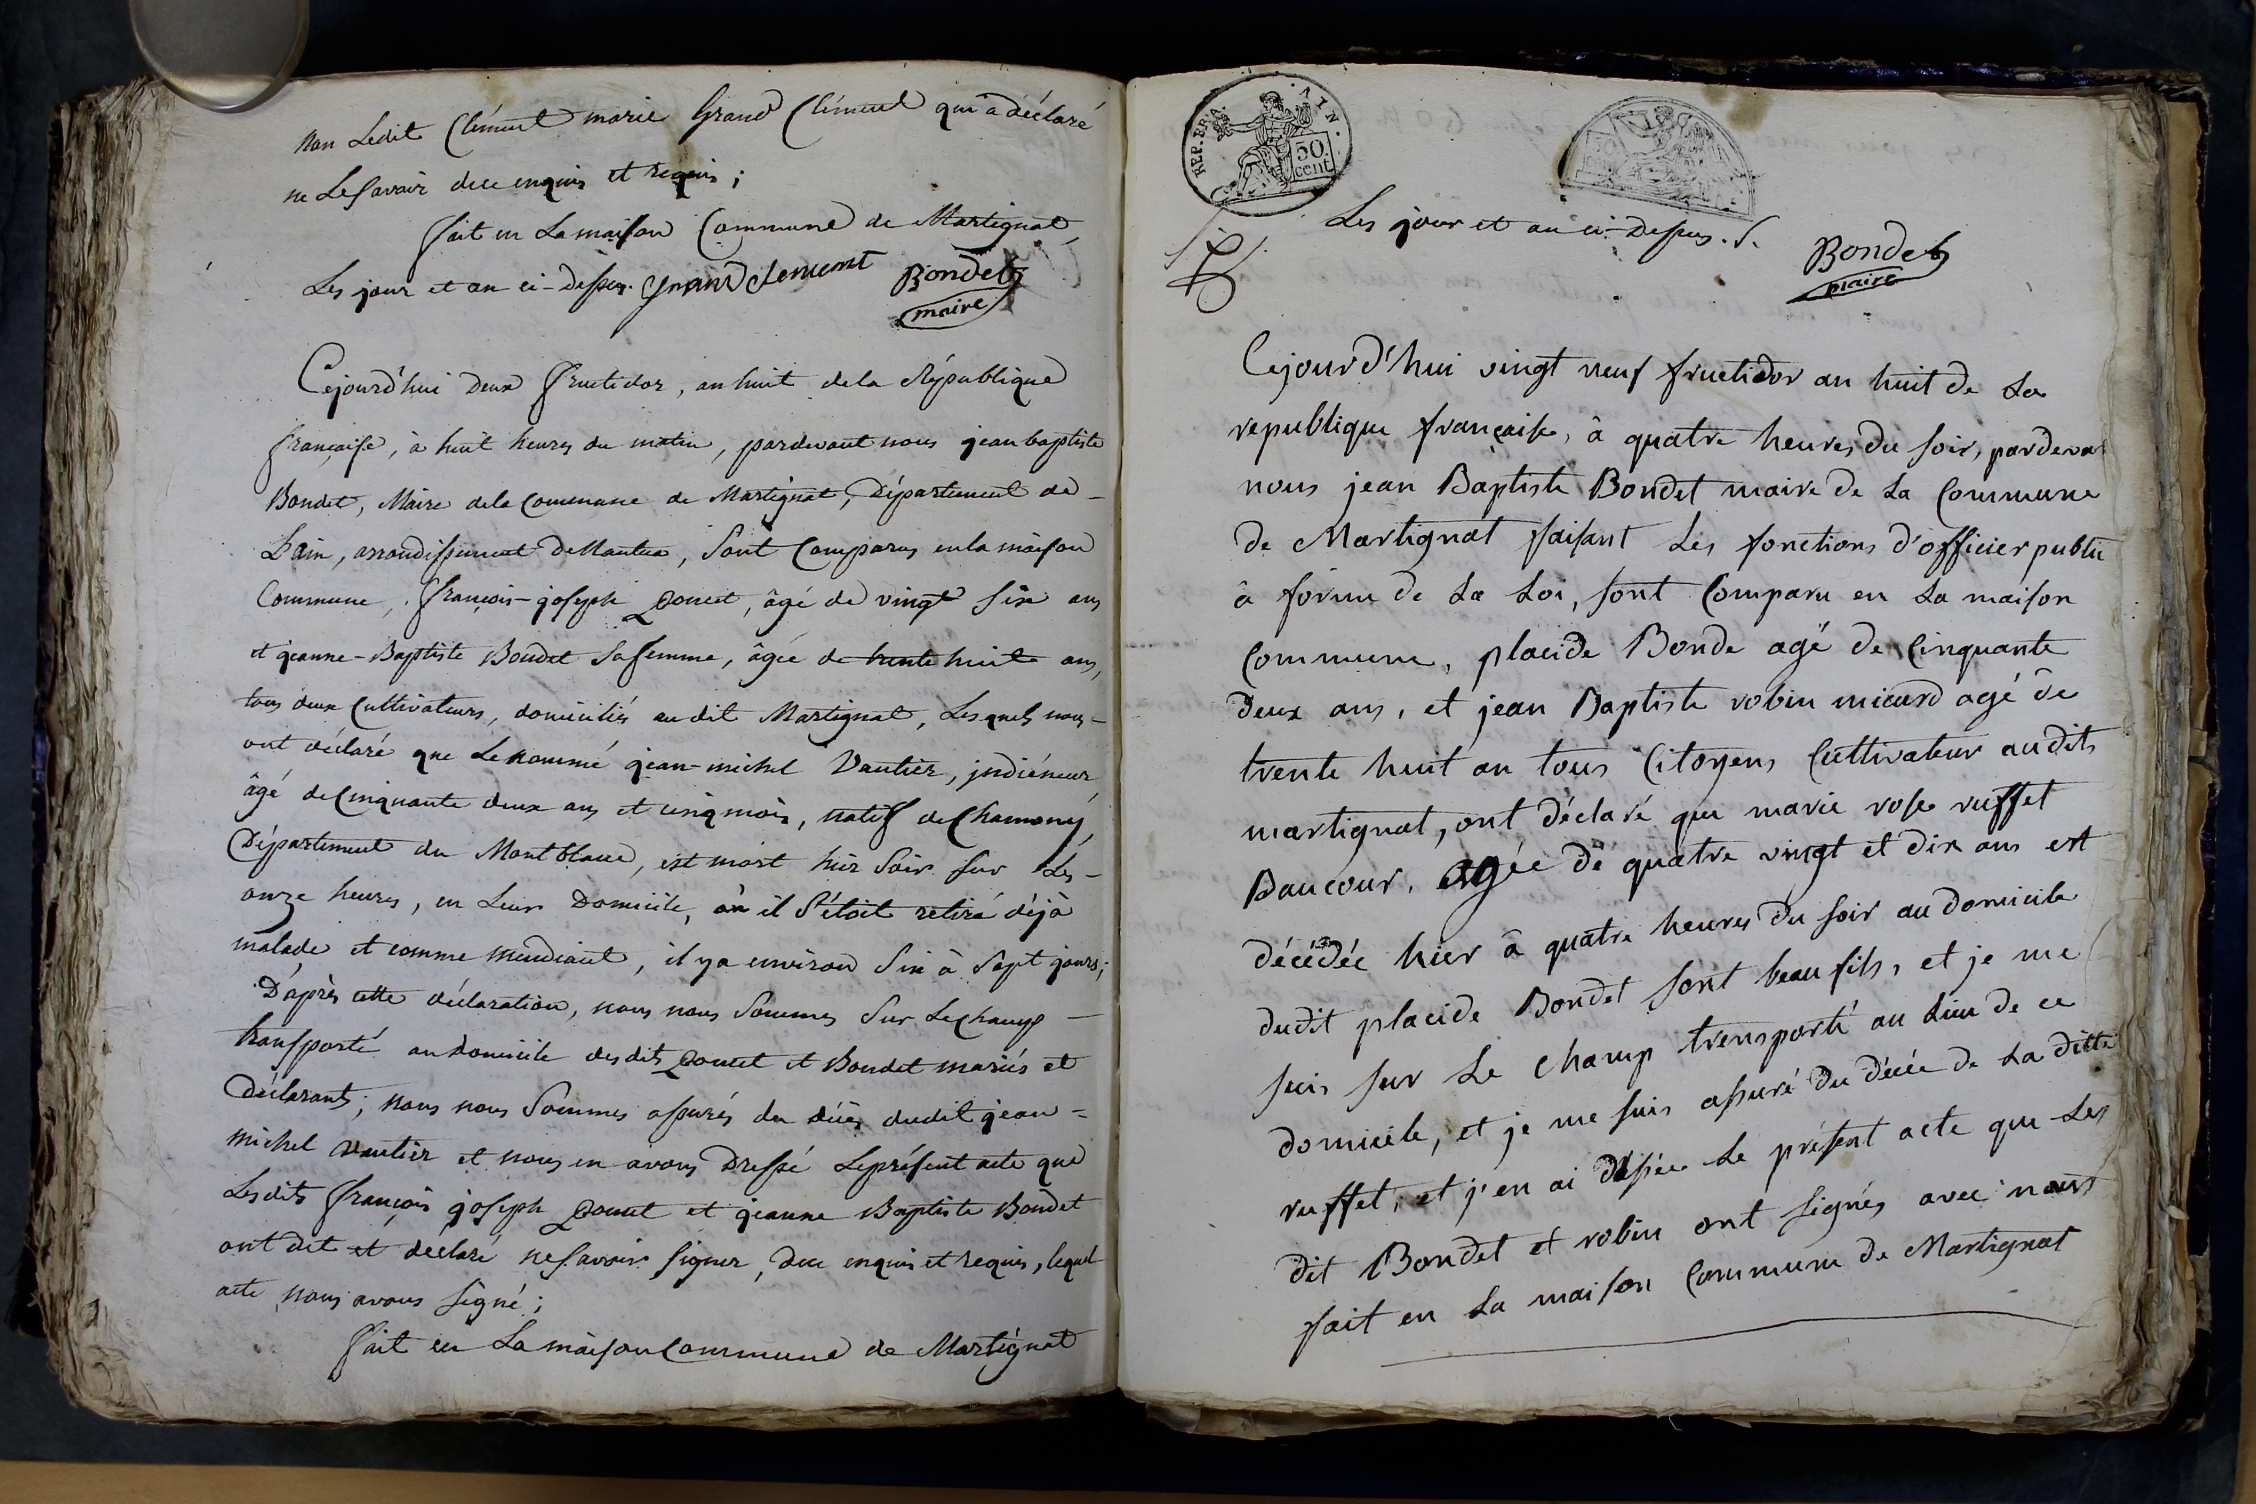 non Ledit Clément marie Grand Clément qui a déclaré
ne Le Savoir de ce enquis et requis ;
fait en La maison Commune de Martignat,
Les jour et an ci-dessus. Grand clement Bondet
maire
Cejourd'hui Deux fructidor, an huit de la République
française, à huit heures du matin, pardevant nous jean baptiste
Bondet, Maire de la Commune de Martignat, Département de
L'ain, arrondissement De Nantua, Sont Comparus en la maison
Commune, françois-joseph Douet, âgé de vingt six ans
et jeanne-Baptiste Bondet Sa femme, âgée de trente huit ans,
tous deux Cultivateurs, domiciliés au dit Martignat, Lesquels nous
ont déclaré que Le nommé jean-michel Vautier, indiéneur,
âgé de Cinquante deux ans et cinq mois, natif de Chamony,
Département du Montblanc, est mort hier Soir Sur Les
onze heures, en Leur Domicile, où il S'étoit retiré déjà
malade et comme mendiant, il y a environ Six à Sept jours ;
D'après cette déclaration, nous nous Sommes Sur Le Champ
transporté au domicile desdits Douet et Bondet mariés et
Déclarants ; nous nous Sommes assurés du décès dudit jean=
michel Vautier et nous en avons Dressé Le présent acte que
Lesdits françois joseph Douet et jeanne Baptiste Bondet
ont dit et déclaré ne Savoir Signer, de ce enquis et requis, lequel
acte nous avons Signé ;
fait en La maison Commune de Martignat
REP. FRA. AIN.
50.
cent.
Les jour et an ci-Dessus. S.
Bondet
maire
Cejourd'hui vingt neuf fructidor an huit de La
republique française, à quatre heures du soir, pardevas
nous jean Baptiste Bondet maire de La Commune
de Martignat faisant Les fonctions d'officier public
à forme de La Loi, sont Comparu en La maison
Commune, placide Bonde agé de Cinquante
deux ans, et jean Baptiste robin micard agé de
trente huit an tous Citoyens Cultivateur audit
martignat, ont déclaré que marie rose ruffet
Baucour, agée de quatre vingt et dix ans est
décédée hier à quatre heures du soir au domicile
dudit placide Bondet sont beau fils, et je me
suis sur Le Champ trensporté au Lieu de ce
domicile, et je me suis assuré du décée de La ditte
ruffet, et j'en ai déssée Le présent acte que Les
dit Bondet et robin ont signés avec nous
fait en La maison Commune de Martignat